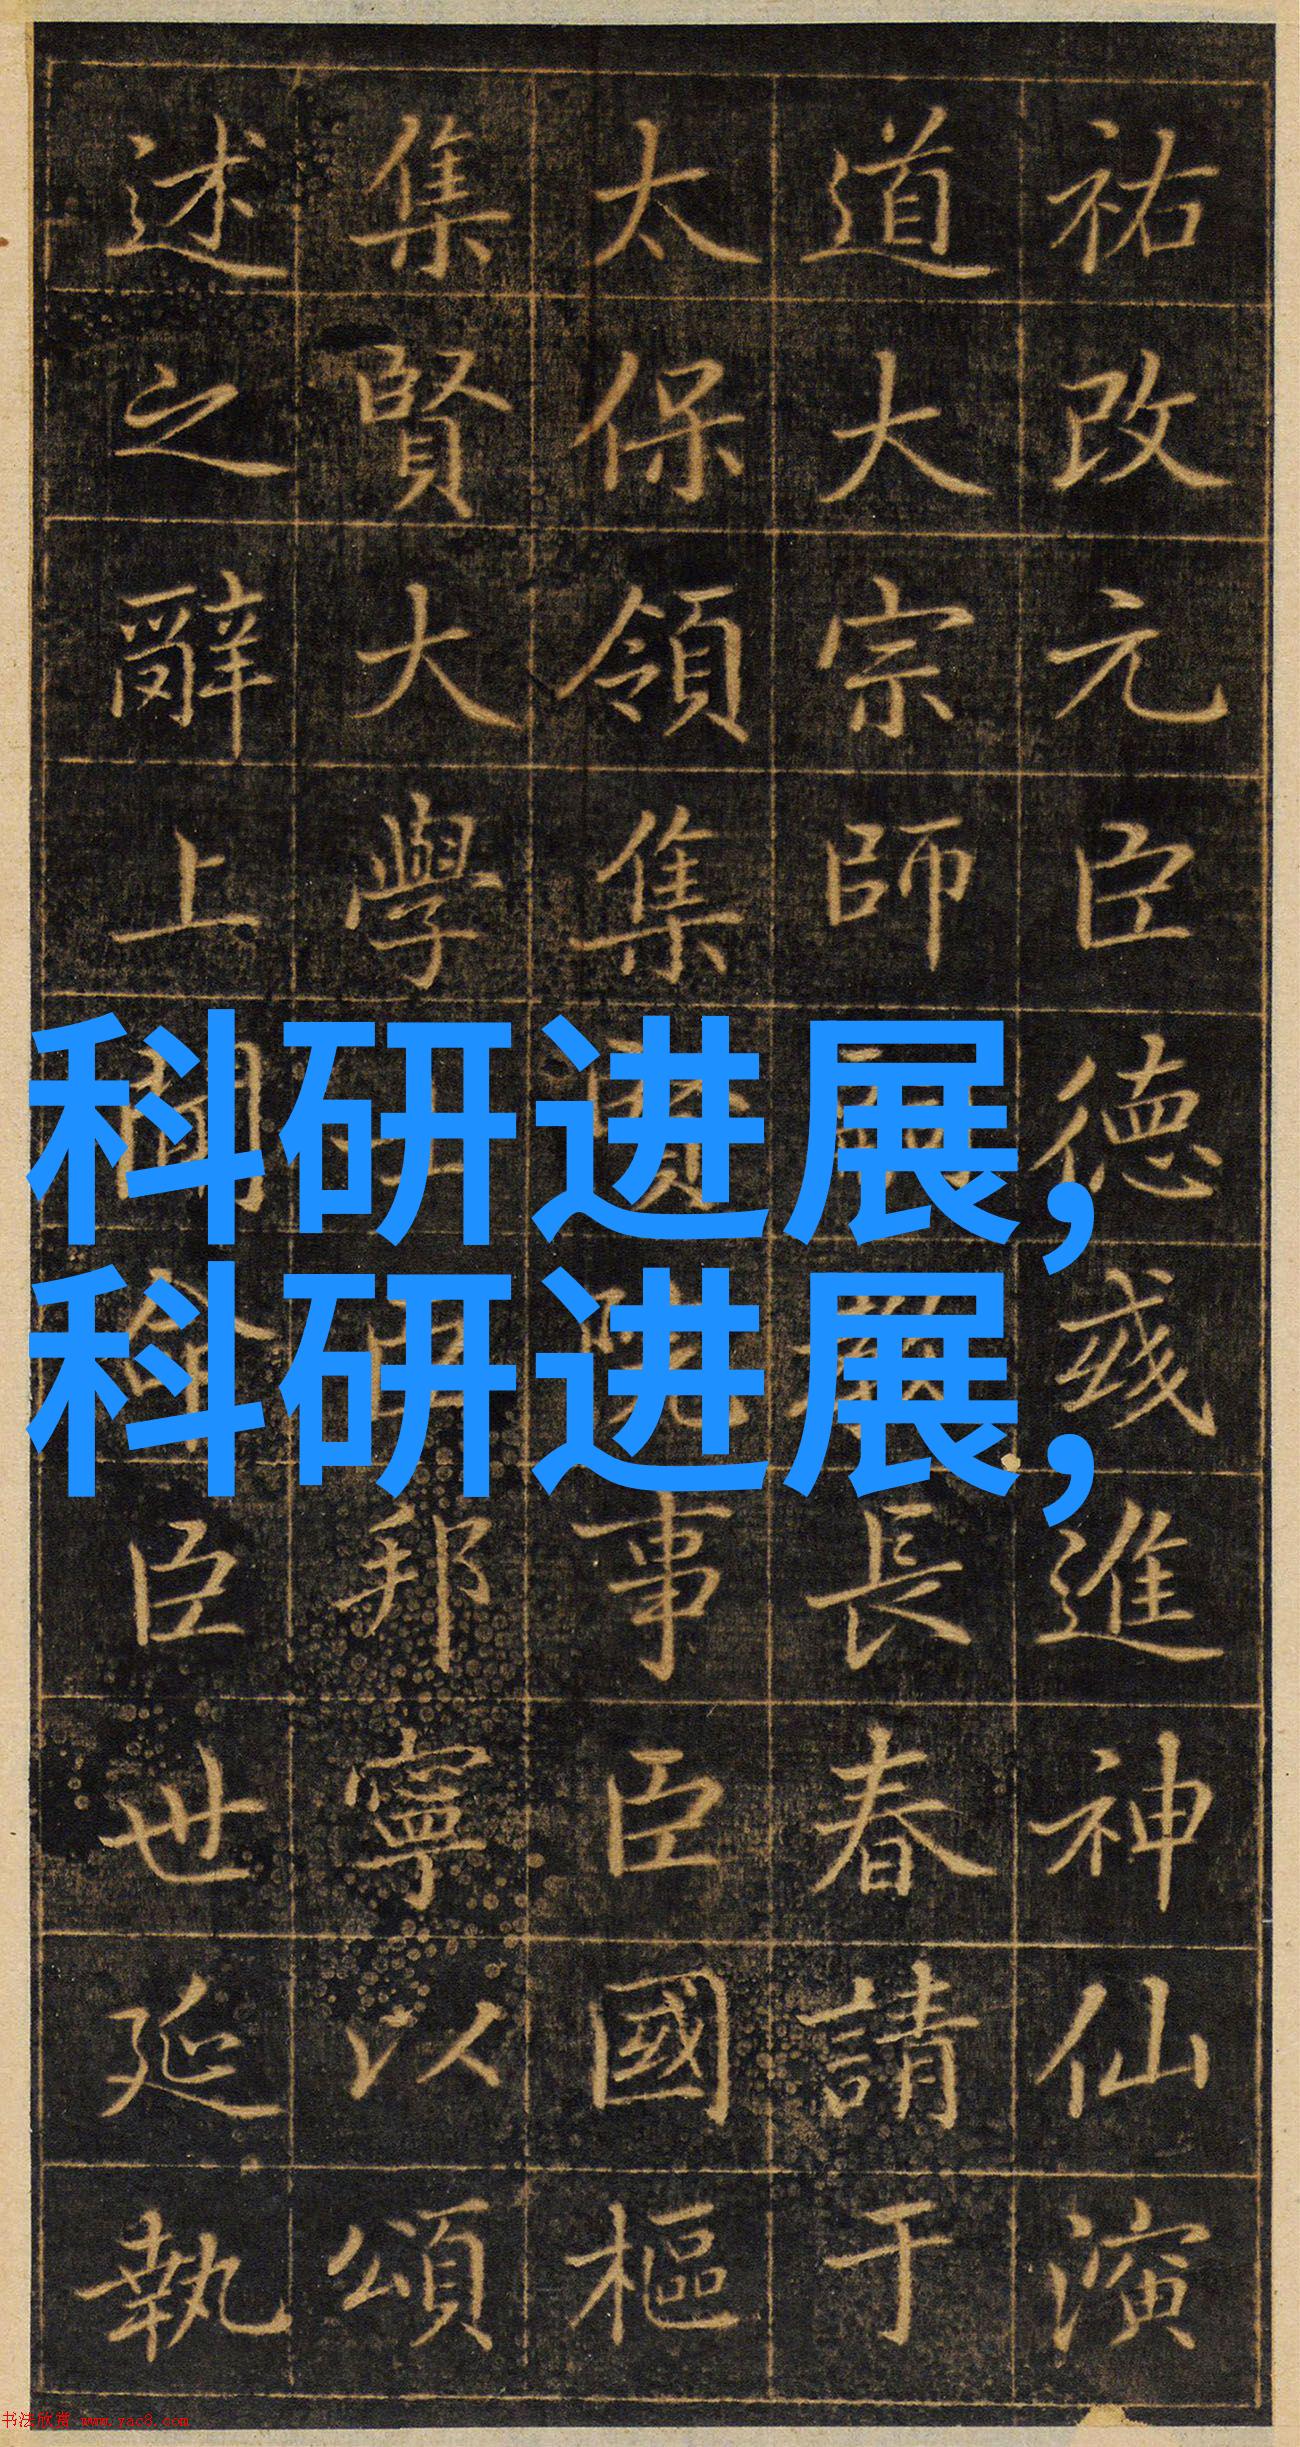 祐改元臣德彧進神仙演
道大宗師長春請于
太保領集賢院事臣國樞
集賢大學士臣邦寧以頌
述之辭上聞命臣世延執
科研进展,
科研进展,
书法欣赏 www.yac8.com